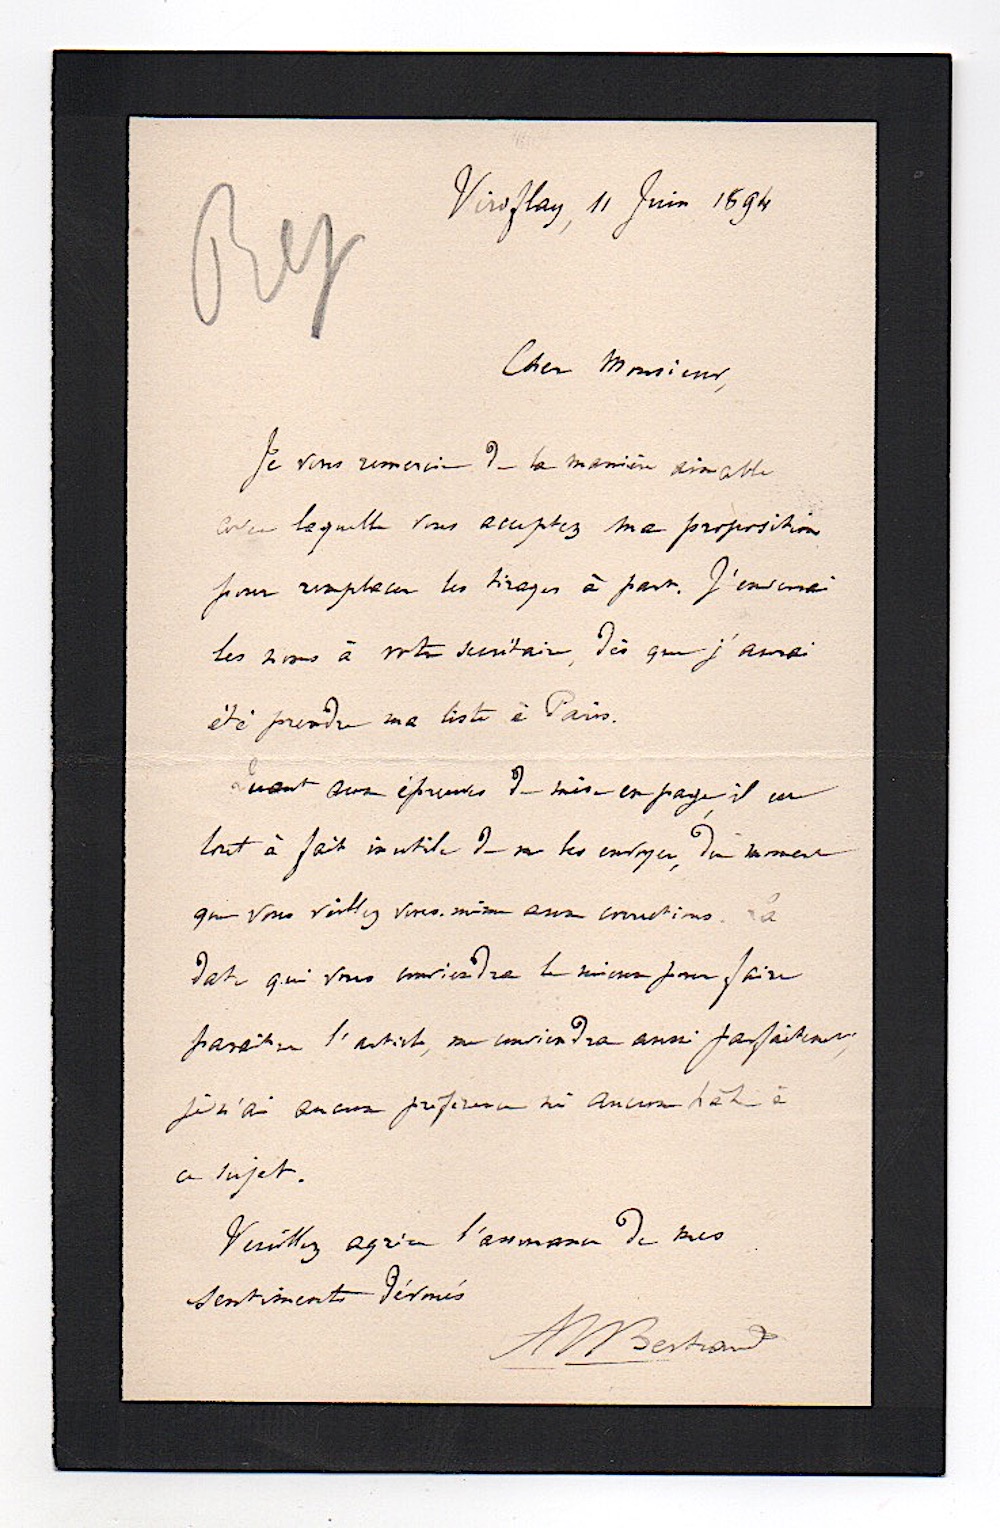 Rey
Viroflay, 11 Juin 1894
Cher Monsieur,
Je vous remercie de la manière aimable
avec laquelle vous acceptez ma proposition
pour remplacer les tirages à part. J'enverrai
les noms à votre secrétaire, dès que j'aurai
été prendre ma liste à Paris.
Quant aux épreuves de mise en page, il est
tout à fait inutile de me les envoyer, du moment
que vous veillez vous-même aux corrections. La
date qui vous conviendra le mieux pour faire
paraître l'article, me conviendra aussi parfaitement,
je n'ai aucune préférence ni aucune hâte à
ce sujet.
Veuillez agréer l'assurance de mes
sentiments dévoués
Bertrand